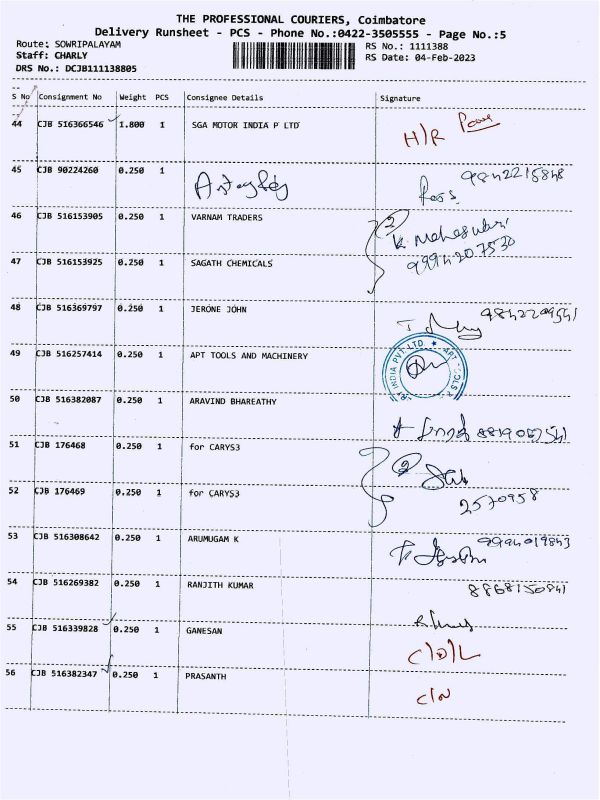 THE PROFESSIONAL COURIERS, Coimbatore
Delivery Runsheet - PCS - Phone No.:0422-3505555 - Page No.:5
Route: SOWRIPALAYAM RS No.: 1111388
Staff: CHARLY RS Date: 04-Feb-2023
DRS No.: DCJB111138805
S No Consignment No Weight PCS Consignee Details Signature
44 CJB 516366546 1.800 1 SGA MOTOR INDIA P LTD H/R
45 CJB 90224260 0.250 1 9842215848
46 CJB 516153905 0.250 1 VARNAM TRADERS 2
K. Maheswari
9994207530
47 CJB 516153925 0.250 1 SAGATH CHEMICALS
48 CJB 516369797 0.250 1 JERONE JOHN 9842209541
49 CJB 516257414 0.250 1 APT TOOLS AND MACHINERY INDIA PVT LTD. * APT
50 CJB 516382087 0.250 1 ARAVIND BHAREATHY
51 CJB 176468 0.250 1 for CARYS3 2
52 CJB 176469 0.250 1 for CARYS3 2570958
53 CJB 516308642 0.250 1 ARUMUGAM K 9994019843
54 CJB 516269382 0.250 1 RANJITH KUMAR 8868150841
55 CJB 516339828 0.250 1 GANESAN C/D/L
56 CJB 516382347 0.250 1 PRASANTH C/N